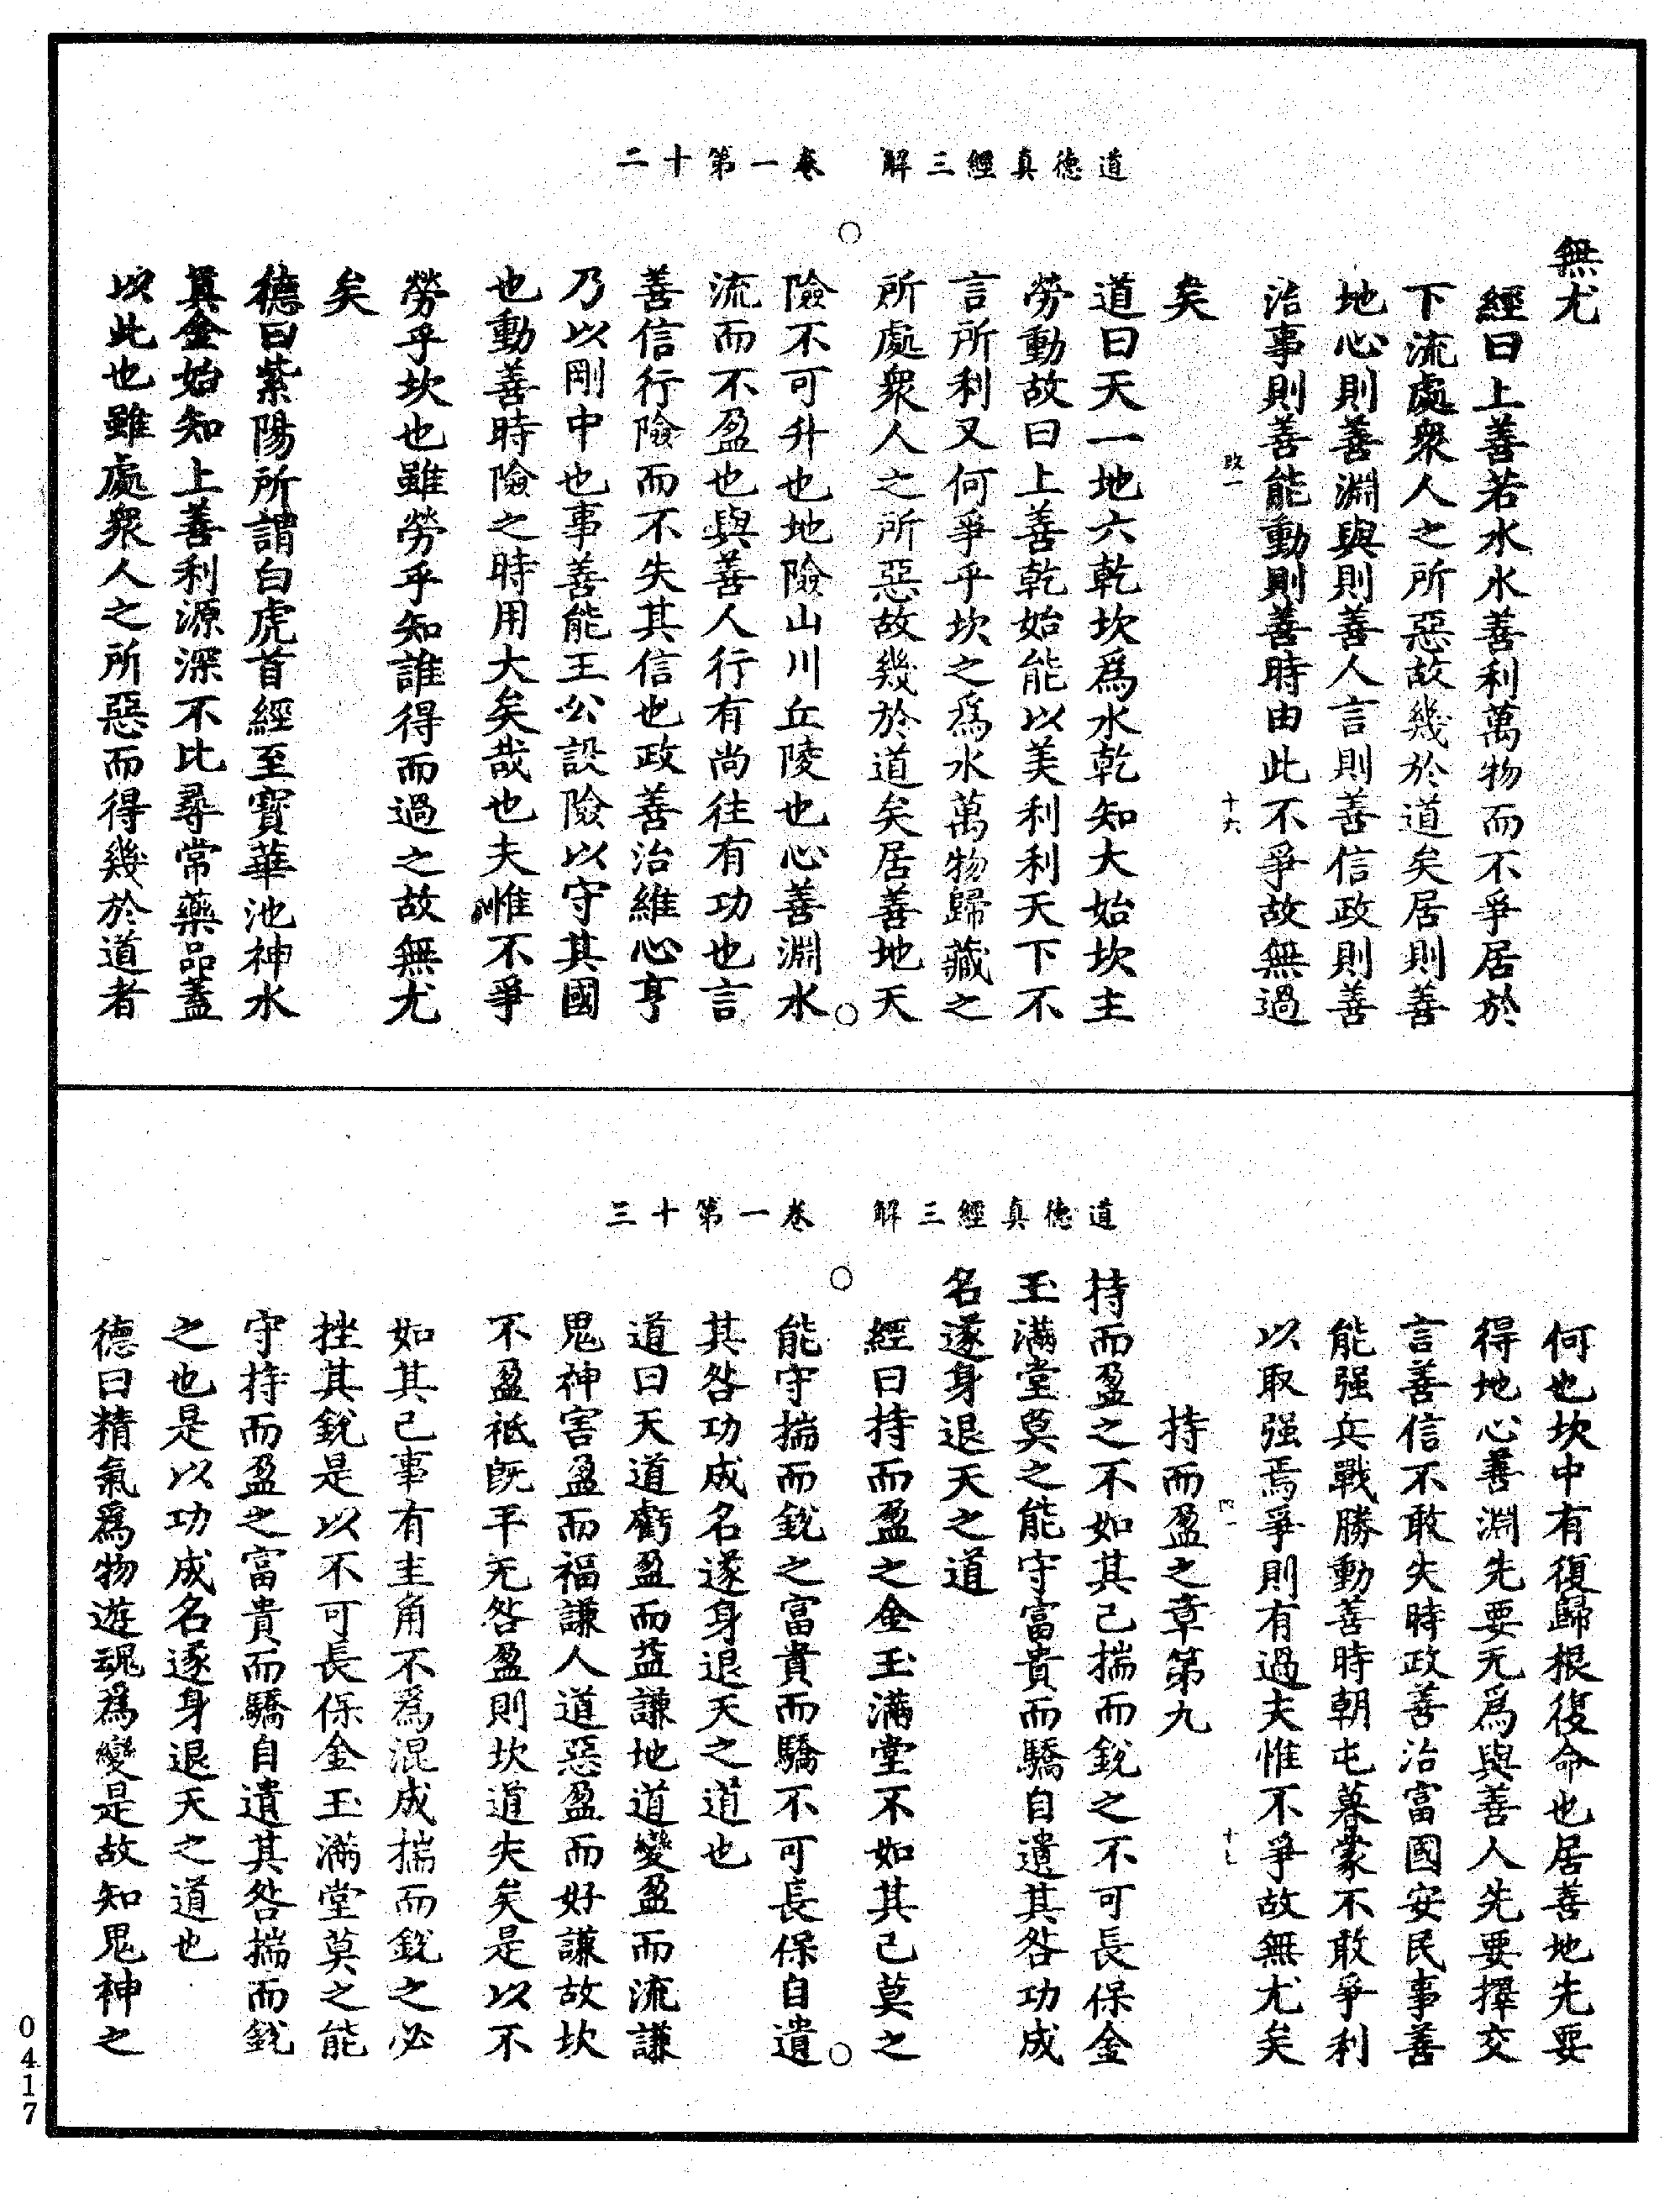 道德真經三解　卷一第十二
無尤
經曰上善若水水善利萬物而不爭居於
下流處衆人之所惡故幾於道矣居則善
地心則善淵與則善人言則善信政則善
治事則善能動則善時由此不爭故無過
矣
道曰天一地六乾坎爲水乾知大始坎主
勞動故曰上善乾始能以美利利天下不
言所利又何爭乎坎之爲水萬物歸藏之
所處衆人之所惡故幾於道矣居善地天
險不可升也地險山川丘陵也心善淵水
流而不盈也與善人行有尚往有功也言
善信行險而不失其信也政善治維心亨
乃以剛中也事善能王公設險以守其國
也動善時險之時用大矣哉也夫惟不爭
勞乎坎也雖勞乎知誰得而過之故無尤
矣
德曰紫陽所謂白虎首經至寶華池神水
真金始知上善利源深不比尋常藥品蓋
以此也雖處衆人之所惡而得幾於道者
十六
道德真經三解　卷一第十三
何也坎中有復歸根復命也居善地先要
得地心善淵先要无爲與善人先要擇交
言善信不敢失時政善治富國安民事善
能强兵戰勝動善時朝屯暮蒙不敢爭利
以取强焉爭則有過夫惟不爭故無尤矣
持而盈之章第九
持而盈之不如其已揣而銳之不可長保金
玉滿堂莫之能守富貴而驕自遺其咎功成
名遂身退天之道
經曰持而盈之金玉滿堂不如其已莫之
能守揣而銳之富貴而驕不可長保自遺
其咎功成名遂身退天之道也
道曰天道虧盈而益謙地道變盈而流謙
鬼神害盈而福謙人道惡盈而好謙故坎
不盈祇旣平无咎盈則坎道失矣是以不
如其已事有主角不爲混成揣而銳之必
挫其銳是以不可長保金玉滿堂莫之能
守持而盈之富貴而驕自遺其咎揣而銳
之也是以功成名遂身退天之道也
德曰精氣爲物遊魂爲變是故知鬼神之
十七
0417